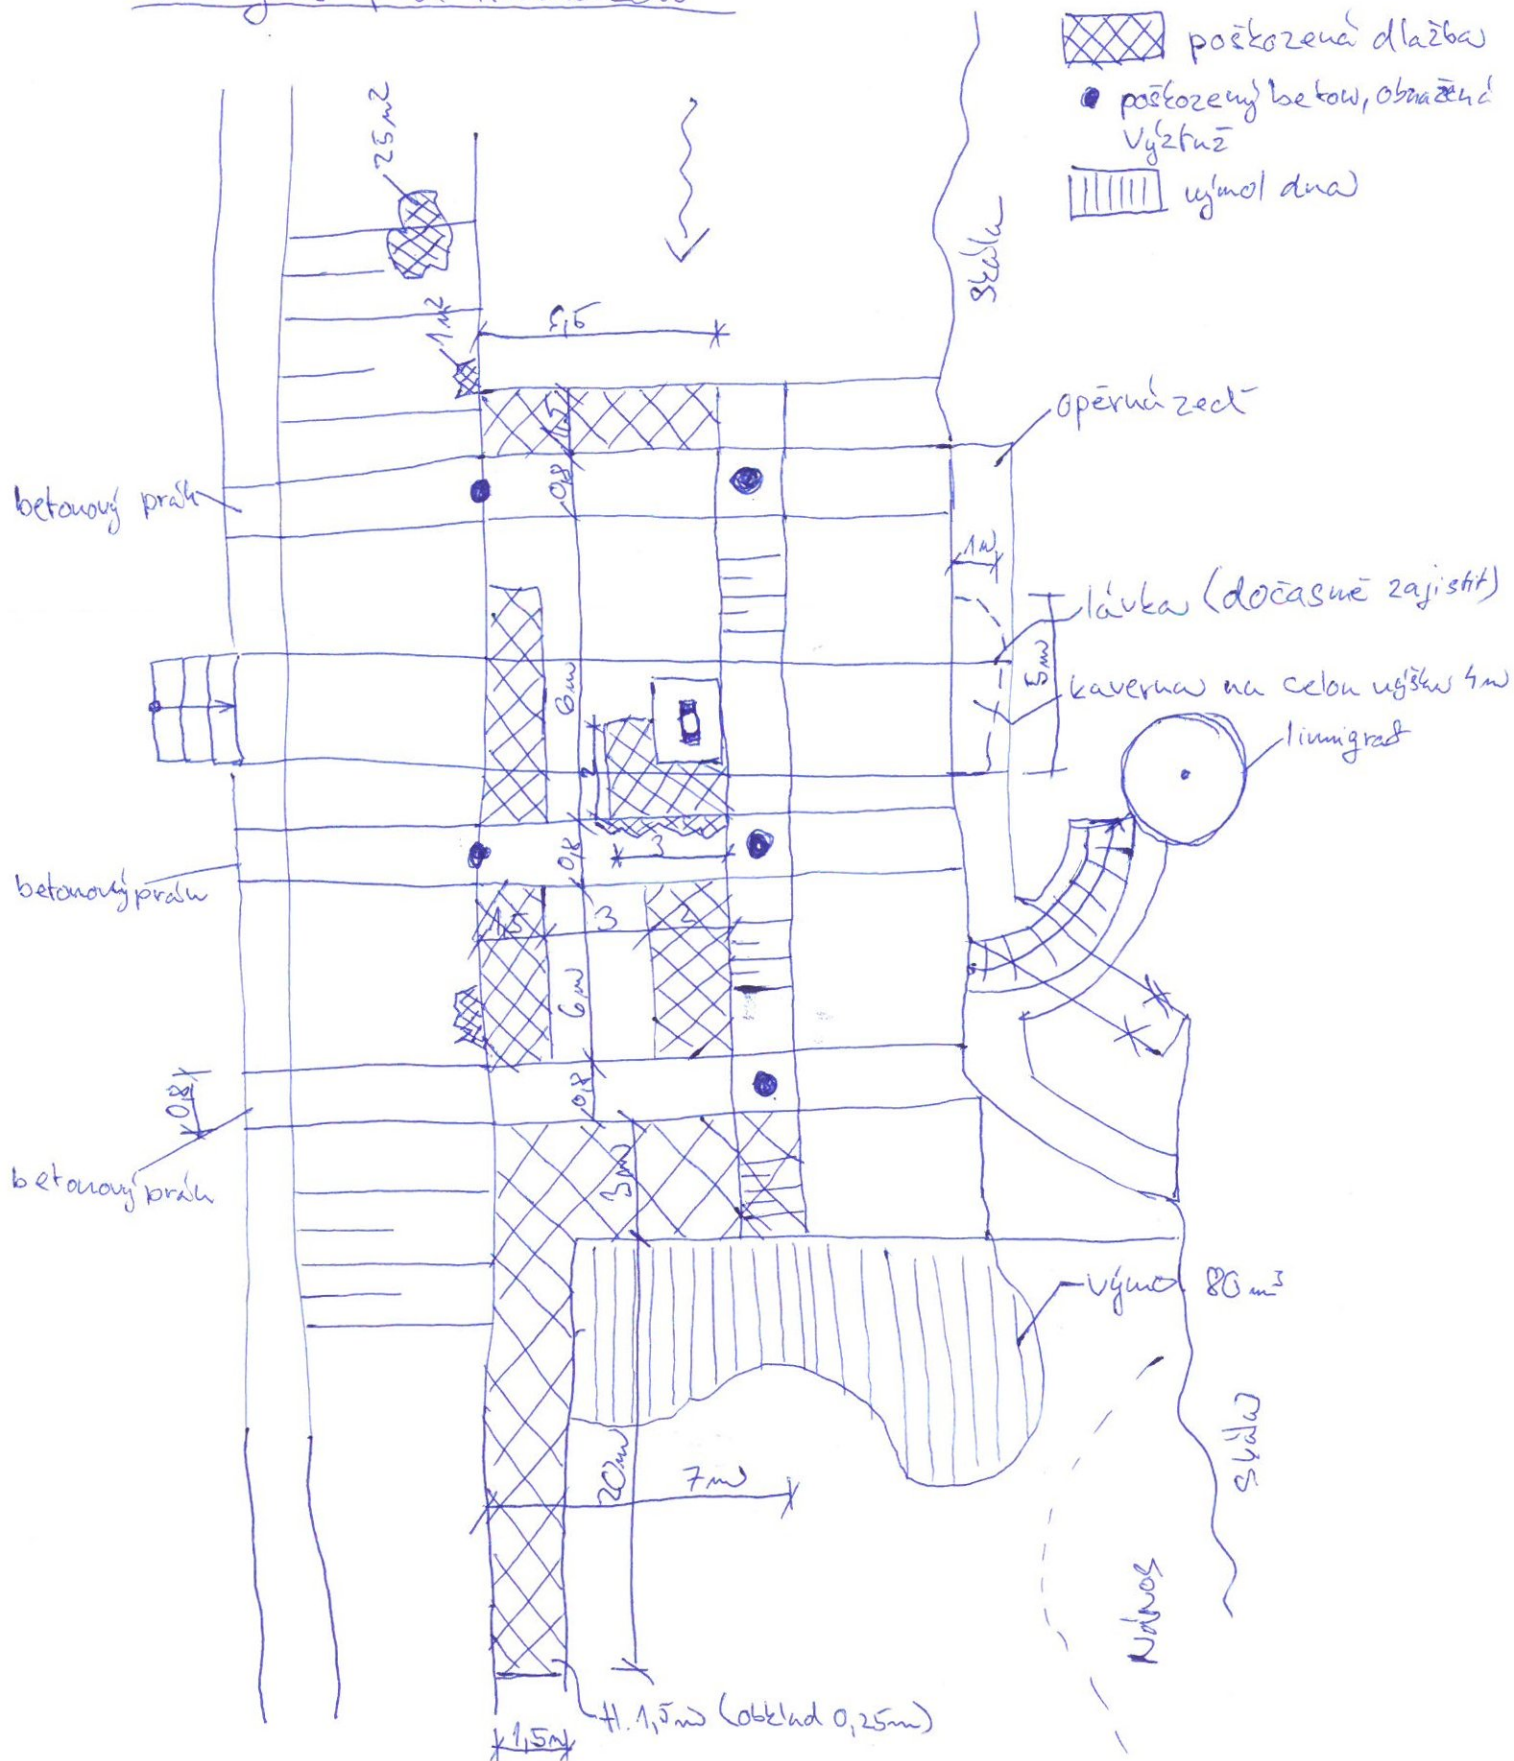 poškozená dlažba
poškozený beton, obnažená
výztuž
výmol dna
25m2
skála
1m2
5,5
1,5
opěrná zeď
0,8
betonový práh
1m
lávka (dočasně zajistit)
5m
6m
kaverna na celou výšku 4m
limnigraf
2
0,8
3
betonový práh
1,5
3
2
6m
0,8
0,8
3m
betonový práh
výmol 80m³
skála
20m
7m
Nános
H. 1,5m (obklad 0,25m)
1,5m